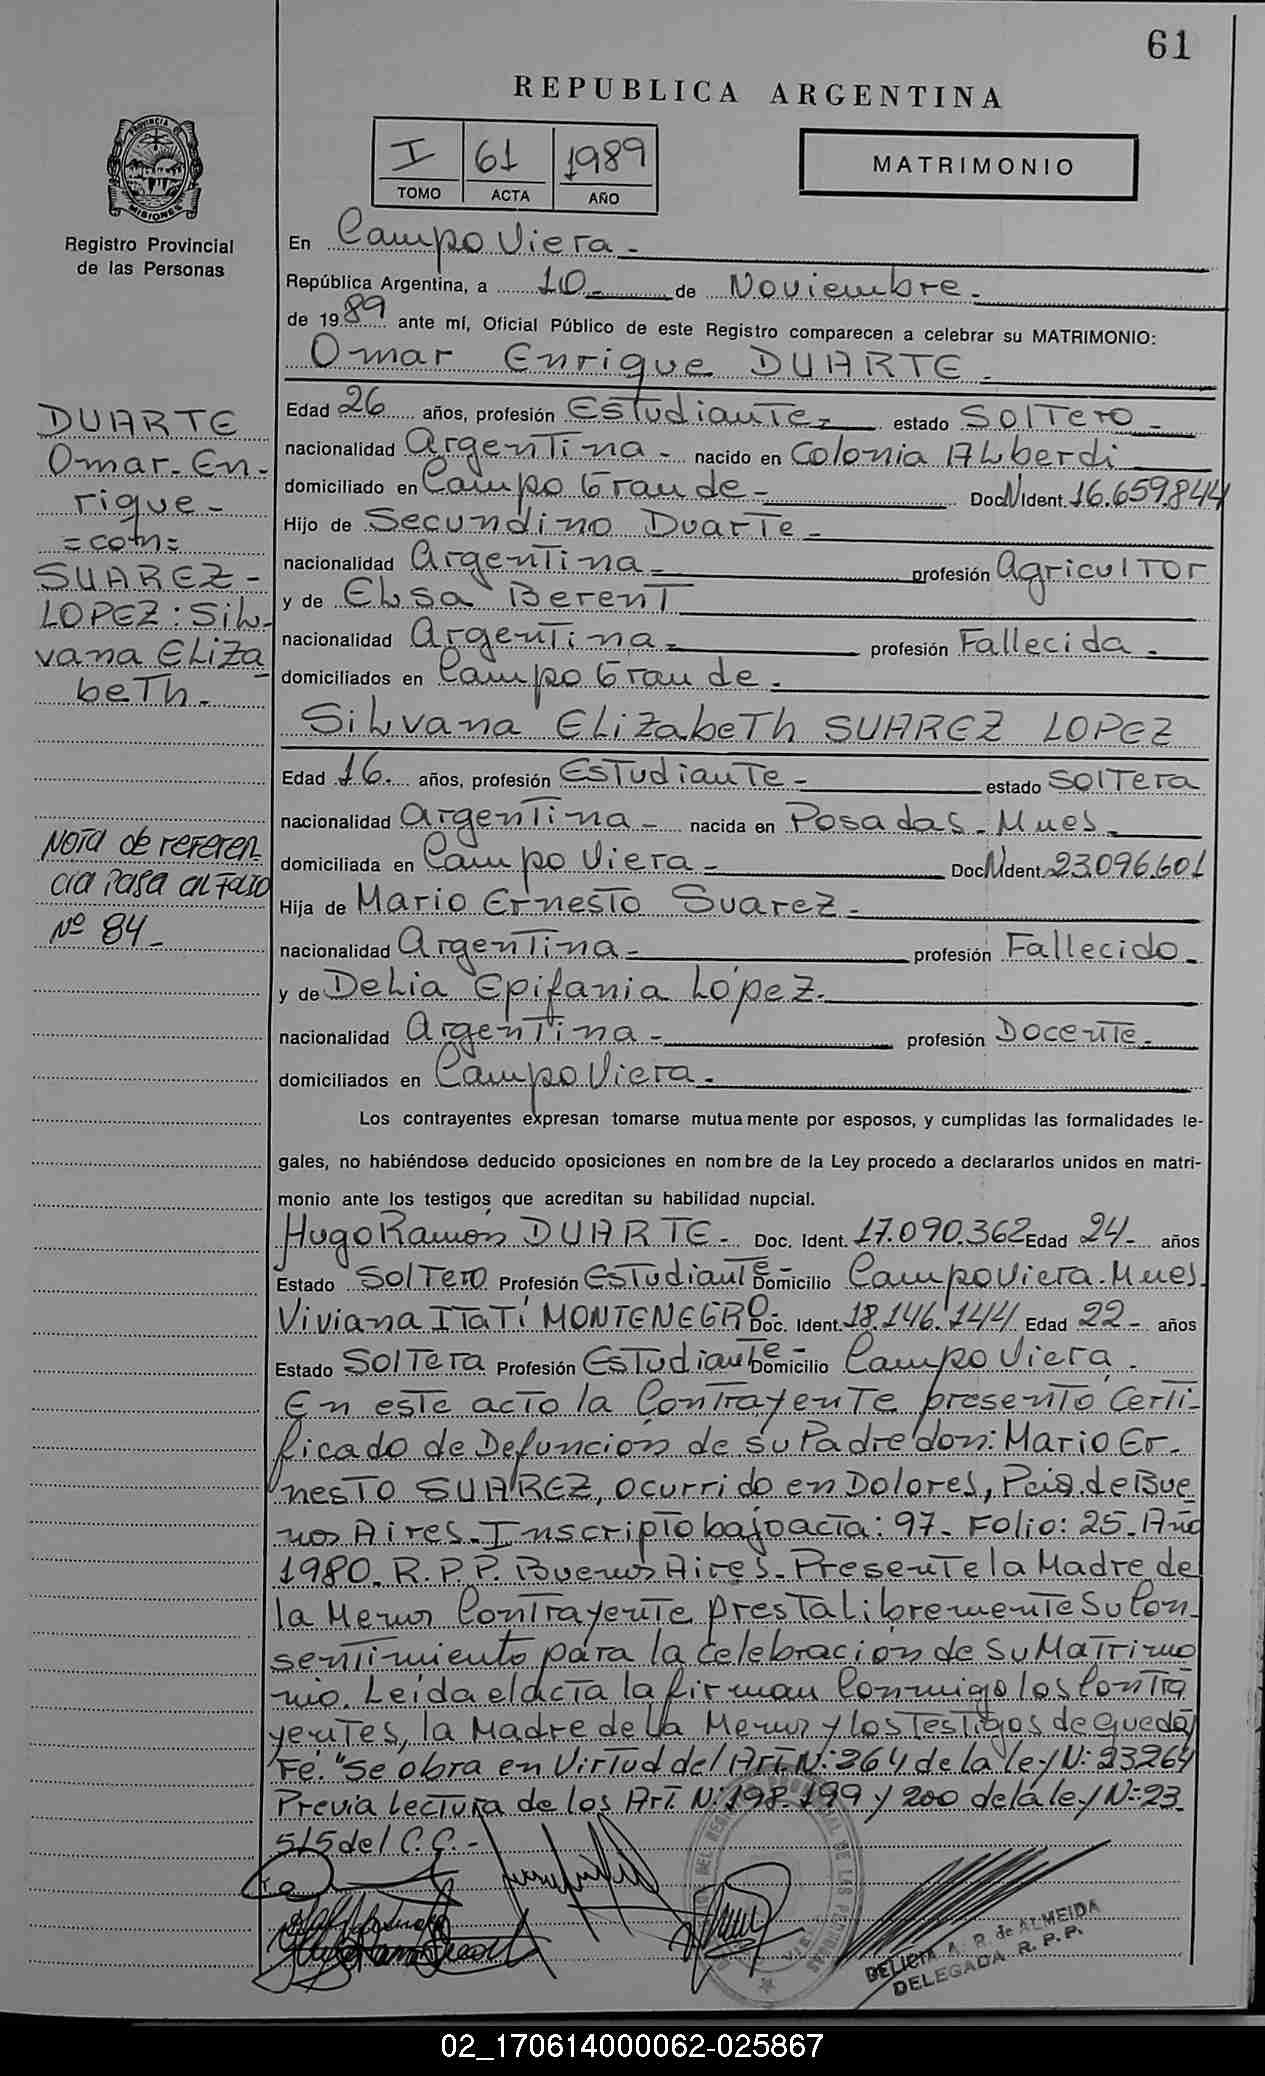 61
REPUBLICA ARGENTINA
I 61 1989
TOMO ACTA AÑO
MATRIMONIO
PROVINCIA DE MISIONES
Registro Provincial
de las Personas
En Campo Viera -
República Argentina, a 10 - de Noviembre -
de 1989 ante mí, Oficial Público de este Registro comparecen a celebrar su MATRIMONIO:
Omar Enrique DUARTE -
Edad 26 años, profesión Estudiante - estado Soltero -
nacionalidad Argentina - nacido en Colonia Alberdi
domiciliado en Campo Grande - Doc N Ident. 16.659.844
Hijo de Secundino Duarte -
nacionalidad Argentina - profesión Agricultor
y de Elsa Berent
nacionalidad Argentina - profesión Fallecida -
domiciliados en Campo Grande -
Silvana Elizabeth SUAREZ LOPEZ
Edad 16 años, profesión Estudiante - estado Soltera
nacionalidad Argentina - nacida en Posadas - Mnes -
domiciliada en Campo Viera - Doc N Ident. 23.096.601
Hija de Mario Ernesto Suarez -
nacionalidad Argentina - profesión Fallecido -
y de Delia Epifania López -
nacionalidad Argentina - profesión Docente -
domiciliados en Campo Viera -
Los contrayentes expresan tomarse mutuamente por esposos, y cumplidas las formalidades le-
gales, no habiéndose deducido oposiciones en nombre de la Ley procedo a declararlos unidos en matri-
monio ante los testigos que acreditan su habilidad nupcial.
Hugo Ramón DUARTE - Doc. Ident. 17.090.362 Edad 24 - años
Estado Soltero Profesión Estudiante - Domicilio Campo Viera - Mnes.
Viviana Itatí MONTENEGRO - Doc. Ident. 18.146.144 Edad 22 - años
Estado Soltera Profesión Estudiante - Domicilio Campo Viera -
En este acto la Contrayente presentó Certi-
ficado de Defunción de su Padre don: Mario Er-
nesto SUAREZ, ocurrido en Dolores, Pcia. de Bue
nos Aires - Inscripto bajo acta: 97 - Folio: 25 - Año
1980. R.P.P. Buenos Aires - Presente la Madre de
la Menor Contrayente presta libremente su Con-
sentimiento para la celebración de su Matrimo
nio. Leída el acta la firman Conmigo los Contra
yentes, la Madre de la Menor y los testigos de que da
Fé. "Se obra en Virtud del Art. N: 264 de la ley N: 23264
Previa lectura de los Art. N: 198-199 y 200 de la ley N: 23
515 del C.C. -
DELICIA A. R. de ALMEIDA
DELEGADA R. P. P.
DUARTE
Omar - En-
rique -
= con =
SUAREZ -
LOPEZ: Sil-
vana Eliza
beth -
Nota de referen-
cia pasa al folio
Nº 84 -
02_170614000062-025867